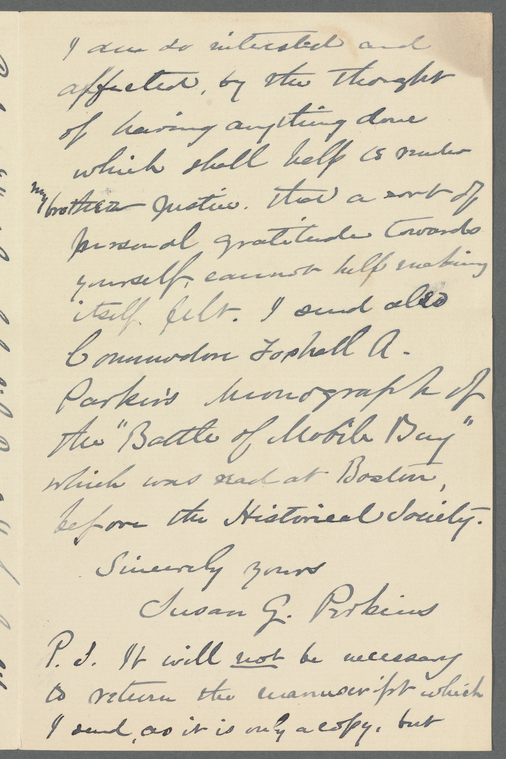 I am so interested and
affected, by the thought
of having anything done
which shall help to render
my brother justice. that a sort of
personal gratitude towards
yourself, cannot help making
itself felt. I send also
Commodore Foxhall A.
Parker's Monograph of
the "Battle of Mobile Bay"
which was read at Boston,
before the Historical Society.
Sincerely yours
Susan G. Perkins
P.S. It will not be necessary
to return the manuscript which
I send, as it is only a copy, but